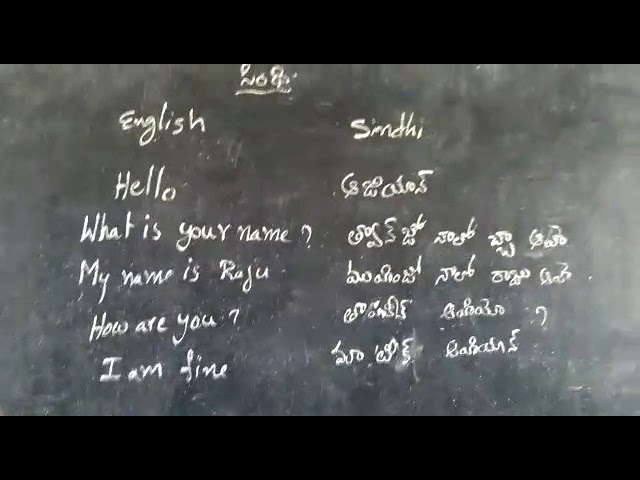 సింధి
English Sindhi
Hello ఆజియాన్
What is your name ? త్వాన్ జో నాలో ఛా ఆహె
My name is Raju ముహింజో నాలో రాజు ఆహె .
How are you ? ఆహియో ?
I am fine మా ఆహియాన్